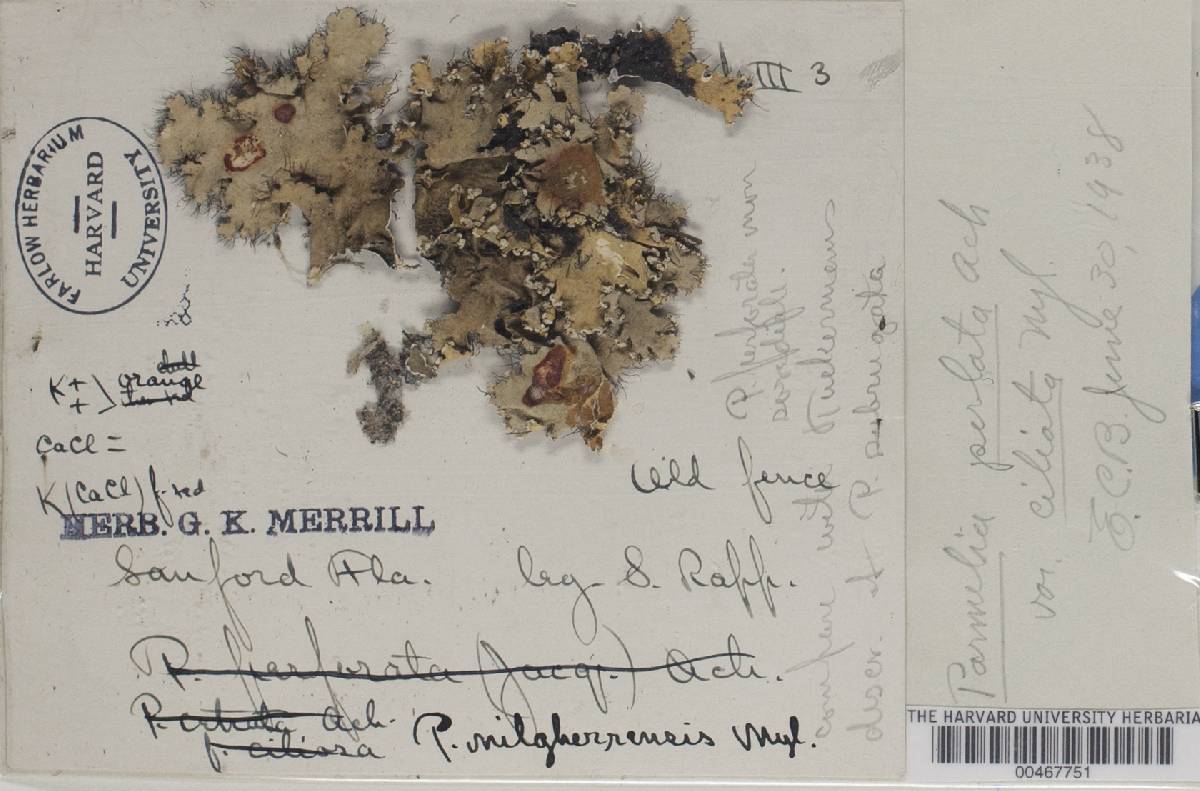 III 3
FARLOW HERBARIUM
HARVARD
UNIVERSITY
K + orange
+
CaCl =
K(CaCl) f. red
HERB. G. K. MERRILL
Old fence
Sanford Fla. leg. S. Rapp.
P. perforata (Jacq.) Ach.
Ach.
f. ciliosa
P. nilgherrensis Nyl.
P. perforata mon
compare with
descr. of P. subrugata
Parmelia perlata Ach
var. ciliata Nyl.
E.C.B. June 30, 1938
THE HARVARD UNIVERSITY HERBARIA
00467751